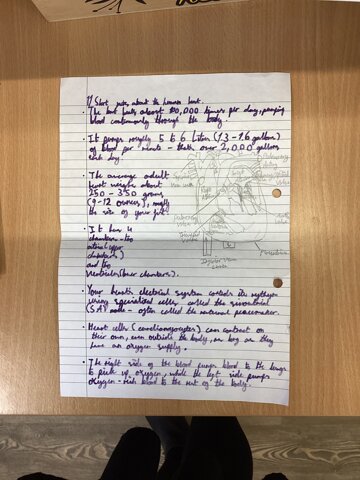 Short notes about the human heart.
• The heart beats about 100,000 times per day, pumping
blood continuously through the body.
• It pumps roughly 5 to 6 liters (1.3-1.6 gallons)
of blood per minute - thats over 2,000 gallons
each day.
• The average adult
heart weighs about
250 - 350 grams
(9-12 ounces), roughly
the size of your fist.
• It has 4
chambers - two
atria (upper
chambers)
and two
ventricles (lower chambers).
Pulmonary
Valve
Inferior Vena
Cava
• Your heart's electrical system controls its rhythm
using specialized cells called the sinoatrial
(SA) node - often called the natural pacemaker.
• Heart cells (cardiomyocytes) can contract on
their own, even outside the body, as long as they
have an oxygen supply.
• The right side of the blood pumps blood to the lungs
to pick up oxygen while the left side pumps
oxygen-rich blood to the rest of the body.